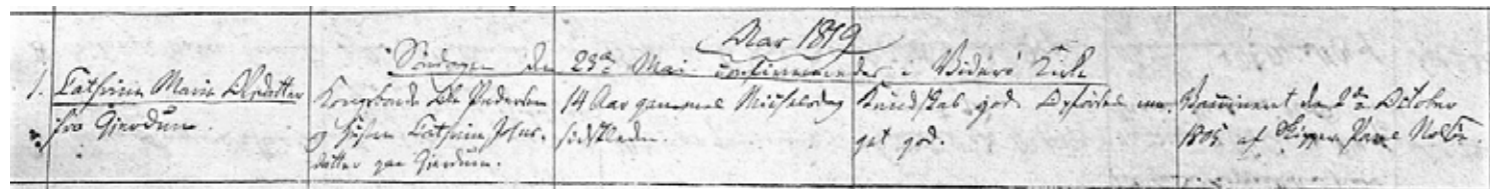 Aar 1819
Søndagen den 23de Mai confirmerede i Viderø Kirke
1. Cathrine Marie Olsdatter
fra Gjerdum.
Kongsbonde Ole Pedersen
og Hustru Cathrine Johns-
datter paa Gjerdum.
14 Aar gammel Michelsdag
sidstleden.
Kundskab god. Opførsel me-
get god.
Vaccineret den 2den October
1805 af Skipper Poul Nolsøe.